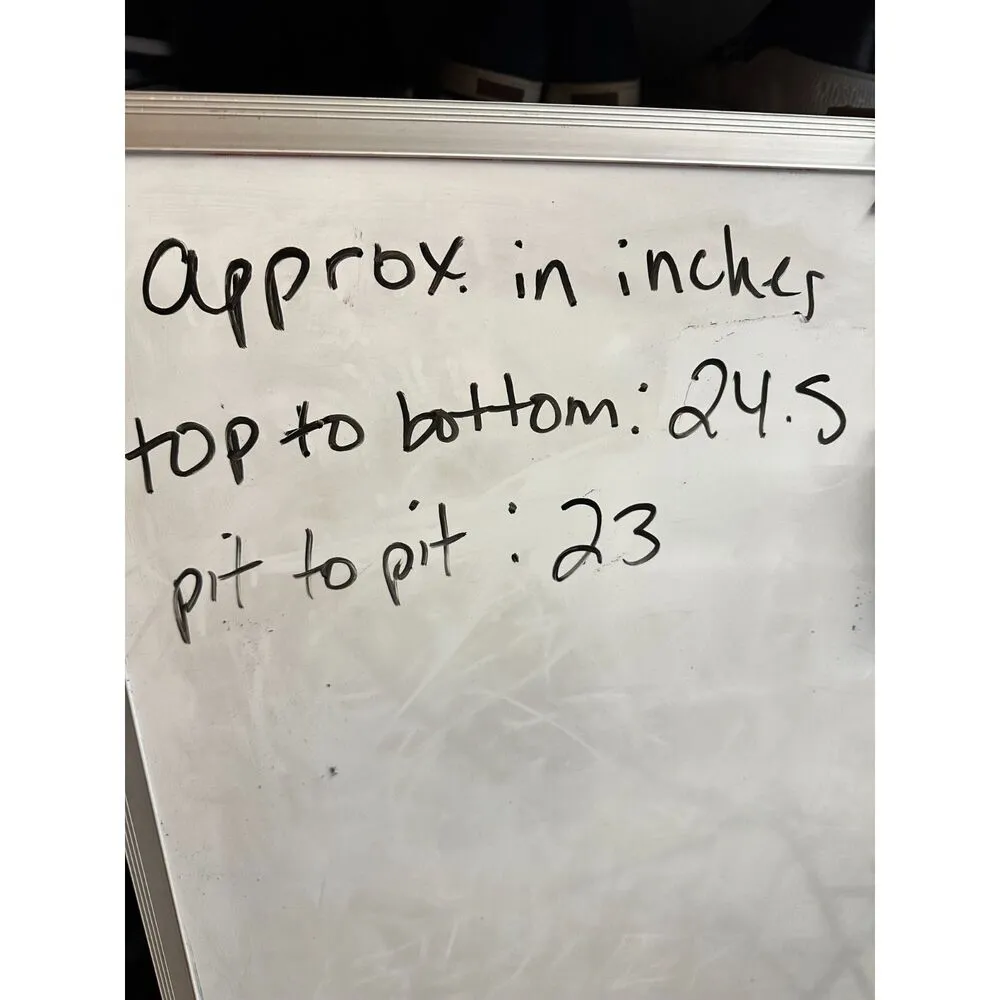 approx. in inches
top to bottom: 24.5
pit to pit: 23